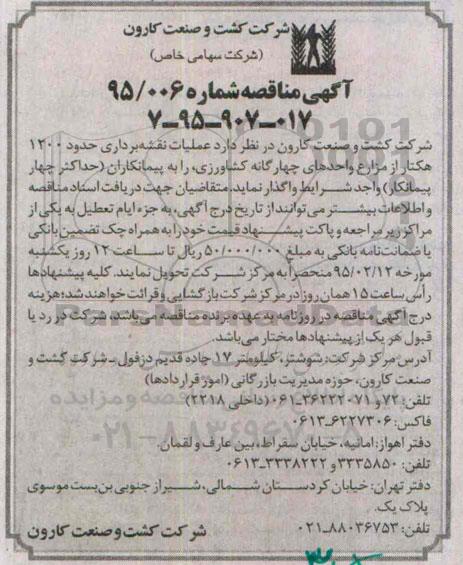 شرکت کشت و صنعت کارون
(شرکت سهامی خاص)
آگهی مناقصه شماره ۹۵/۰۰۶
۷-۹۵-۹۰۷-۰۱۷
شرکت کشت و صنعت کارون در نظر دارد عملیات نقشه‌برداری حدود ۱۲۰۰
هکتار از مزارع واحدهای چهارگانه کشاورزی، را به پیمانکاران (حداکثر چهار
پیمانکار) واجد شرایط واگذار نماید. متقاضیان جهت دریافت اسناد مناقصه
و اطلاعات بیشتر می‌توانند از تاریخ درج آگهی، به جزء ایام تعطیل به یکی از
مراکز زیر مراجعه و پاکت پیشنهاد قیمت خود را به همراه چک تضمین بانکی
یا ضمانت‌نامه بانکی به مبلغ ۵۰/۰۰۰/۰۰۰ ریال تا ساعت ۱۲ روز یکشنبه
مورخه ۹۵/۰۲/۱۲ منحصراً به مرکز شرکت تحویل نمایند. کلیه پیشنهادها
رأس ساعت ۱۵ همان روز در مرکز شرکت بازگشایی و قرائت خواهند شد؛ هزینه
درج آگهی مناقصه در روزنامه به عهده برنده مناقصه می‌باشد، شرکت در رد یا
قبول هر یک از پیشنهادها مختار می‌باشد.
آدرس مرکز شرکت: شوشتر، کیلومتر ۱۷ جاده قدیم دزفول - شرکت کشت و
صنعت کارون، حوزه مدیریت بازرگانی (امور قراردادها)
تلفن: ۷۲ و ۳۶۲۲۲۰۷۱-۰۶۱ (داخلی ۲۲۱۸)
فاکس: ۶۲۲۷۳۰۶-۰۶۱۳
دفتر اهواز: امانیه، خیابان سقراط، بین عارف و لقمان.
تلفن: ۳۳۳۵۸۵۰ و ۳۳۳۸۲۲۲-۰۶۱۳
دفتر تهران: خیابان کردستان شمالی، شیراز جنوبی بن‌بست موسوی
پلاک یک.
تلفن: ۸۸۰۳۶۷۵۳-۰۲۱
شرکت کشت و صنعت کارون